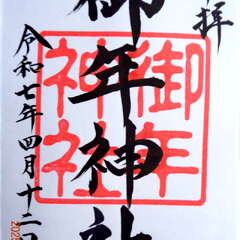 拝
御年神社
御年
神社
令和七年四月十二日
202